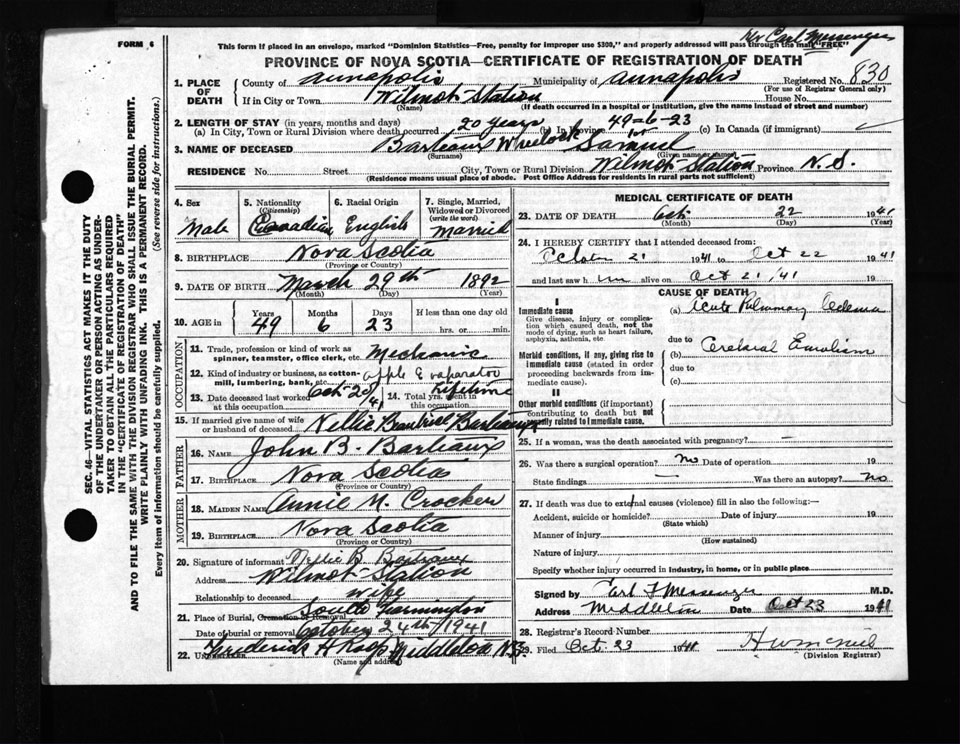 per Carl Messenger
FORM 6
This form if placed in an envelope, marked "Dominion Statistics—Free, penalty for improper use $300," and properly addressed will pass through the mail "FREE"
PROVINCE OF NOVA SCOTIA—CERTIFICATE OF REGISTRATION OF DEATH
1. PLACE OF DEATH County of Annapolis Municipality of Annapolis Registered No. 830
(For use of Registrar General only)
If in City or Town Wilmot Station House No.
(Name) (If death occurred in a hospital or institution, give the name instead of street and number)
2. LENGTH OF STAY (in years, months and days)
(a) In City, Town or Rural Division where death occurred 20 years (b) In Province 49-6-23 (c) In Canada (if immigrant)
3. NAME OF DECEASED Barteaux Wheelock Samuel
(Surname) (Given name or names)
RESIDENCE No. Street City, Town or Rural Division Wilmot Station Province N. S.
(Residence means usual place of abode. Post Office Address for residents in rural parts not sufficient)
4. Sex Male
5. Nationality (Citizenship) Canadian
6. Racial Origin English
7. Single, Married, Widowed or Divorced (write the word) Married
8. BIRTHPLACE Nova Scotia
(Province or Country)
9. DATE OF BIRTH March 29th 1892
(Month) (Day) (Year)
10. AGE in Years 49 Months 6 Days 23 If less than one day old hrs. or min.
OCCUPATION
11. Trade, profession or kind of work as spinner, teamster, office clerk, etc. Mechanic
12. Kind of industry or business, as cotton-mill, lumbering, bank, etc. Apple Evaporator
13. Date deceased last worked at this occupation Oct 20/41 14. Total yrs. spent in this occupation Lifetime
15. If married give name of wife or husband of deceased Nellie Beatrice Barteaux
FATHER
16. NAME John B. Barteaux
17. BIRTHPLACE Nova Scotia
(Province or Country)
MOTHER
18. MAIDEN NAME Annie M. Crocker
19. BIRTHPLACE Nova Scotia
(Province or Country)
20. Signature of informant Nellie B Barteaux
Address Wilmot Station
Relationship to deceased wife
21. Place of Burial, Cremation or Removal South Farmington
Date of burial or removal October 24th/1941
22. Undertaker Frederick H Roop Middleton N.S.
(Name and address)
MEDICAL CERTIFICATE OF DEATH
23. DATE OF DEATH Oct. 22 1941
(Month) (Day) (Year)
24. I HEREBY CERTIFY that I attended deceased from:
October 21 1941 to Oct 22 1941
and last saw him alive on Oct 21/41 19
CAUSE OF DEATH
I
Immediate cause
Give disease, injury or complication which caused death, not the mode of dying, such as heart failure, asphyxia, asthenia, etc.
(a) Acute Pulmonary Oedema
due to
Morbid conditions, if any, giving rise to immediate cause (stated in order proceeding backwards from immediate cause).
(b) Cerebral Embolism
due to
(c)
II
Other morbid conditions (if important) contributing to death but not causally related to immediate cause.
25. If a woman, was the death associated with pregnancy? —
26. Was there a surgical operation? No Date of operation 19
State findings — Was there an autopsy? No
27. If death was due to external causes (violence) fill in also the following:—
Accident, suicide or homicide? Date of injury 19
(State which)
Manner of injury
(How sustained)
Nature of injury
Specify whether injury occurred in industry, in home, or in public place
Signed by Carl F Messenger M.D.
Address Middleton Date Oct 23 1941
28. Registrar's Record Number
29. Filed Oct. 23 1941
(Division Registrar)
SEC. 46—VITAL STATISTICS ACT MAKES IT THE DUTY
OF THE UNDERTAKER OR PERSON ACTING AS UNDER-
TAKER TO OBTAIN ALL THE PARTICULARS REQUIRED
IN THE "CERTIFICATE OF REGISTRATION OF DEATH"
AND TO FILE THE SAME WITH THE DIVISION REGISTRAR WHO SHALL ISSUE THE BURIAL PERMIT.
WRITE PLAINLY WITH UNFADING INK. THIS IS A PERMANENT RECORD.
Every item of information should be carefully supplied. (See reverse side for instructions.)